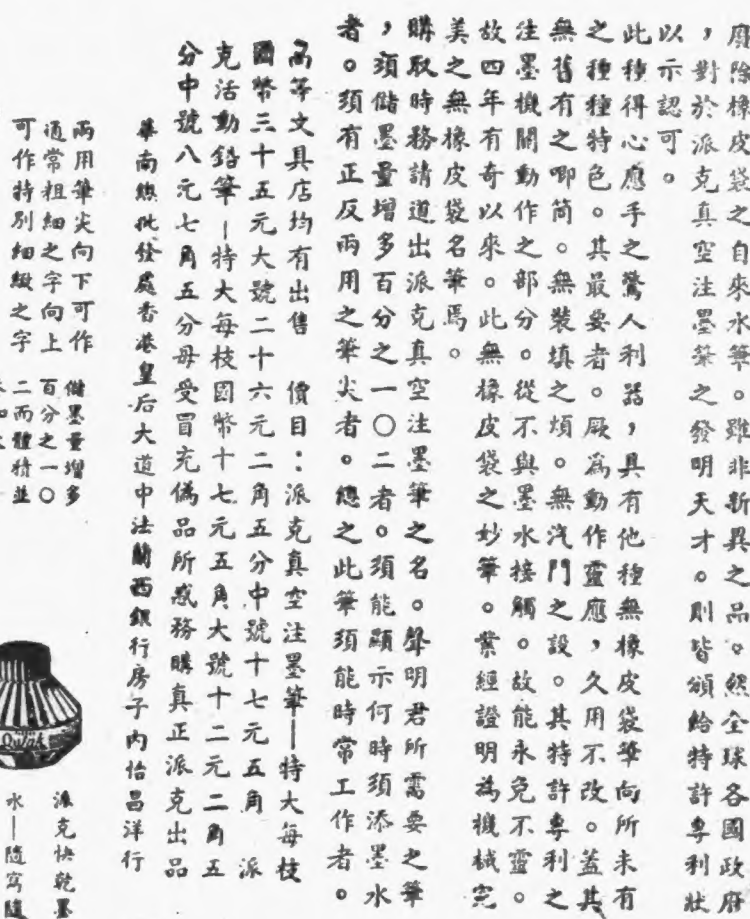 廢除橡皮袋之自來水筆。雖非新異之品。然全球各國政府
，對於派克真空注墨筆之發明天才。則皆頒給特許專利狀
以示認可。
此種得心應手之驚人利器，具有他種無橡皮袋筆向所未有
之種種特色。其最要者。厥為動作靈應，久用不改。蓋其
無舊有之唧筒。無裝填之煩。無汽門之設。其特許專利之
注墨機關動作之部分。從不與墨水接觸。故能永免不靈。
故四年有奇以來。此無橡皮袋之妙筆。業經證明為機械完
美之無橡皮袋名筆焉。
購取時務請道出派克真空注墨筆之名。聲明君所需要之筆
，須儲墨量增多百分之一〇二者。須能顯示何時須添墨水
者。須有正反兩用之筆尖者。總之此筆須能時常工作者。
高等文具店均有出售 價目：派克真空注墨筆—特大每枝
國幣三十五元大號二十六元二角五分中號十七元五角 派
克活動鉛筆—特大每枝國幣十七元五角大號十二元二角五
分中號八元七角五分毋受冒充偽品所惑務購真正派克出品
華南總批發處香港皇后大道中法蘭西銀行房子內怡昌洋行
兩用筆尖向下可作
通常粗細之字向上
可作特別細緻之字
儲墨量增多
百分之一〇
二而體積並
Quink
派克快乾墨
水—隨寫隨